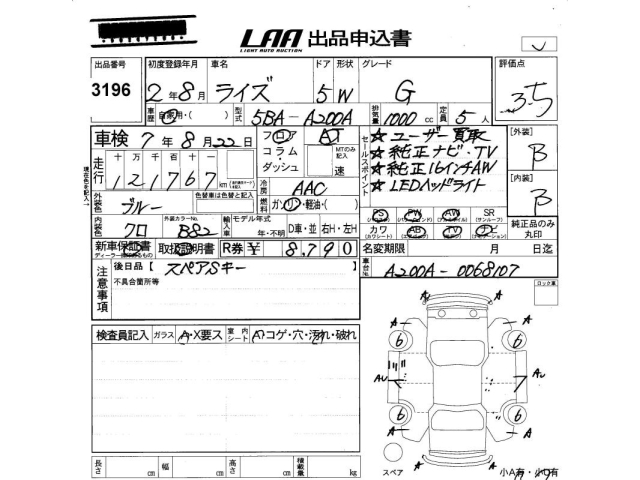 LAA 出品申込書
LIGHT AUTO AUCTION
出品番号 初度登録年月 車名 ドア 形状 グレード 評価点
3196 2年8月 ライズ 5 W G 3.5
車歴 自家用・( ) 型式 5BA-A200A 排気量 1000 cc 定員 5人
車検 7年8月22日 フロア AT
コラム・ダッシュ MTのみ記入 速
セールスポイント
★ユーザー買取
★純正ナビ・TV
★純正16インチAW
★LEDヘッドライト
[外装] B
[内装] B
走行 十万千百十一
121767 km
外装色 ブルー 色替車は色替と記入
冷房 AAC
燃料 ガソリン・軽油・( )
内装色 クロ 外装カラーNo. B82 輸入車 モデル年式 年・不明 D車・並 右H・左H
PS PW AW SR
カワ AB TV ナビ
純正品のみ丸印
新車保証書 取扱説明書 R券 ¥ 8,790
ディーラー
名変期限 月 日迄
車台No. A200A-0068107
注意事項 後日品 [スペアSキー
不具合箇所等
ロック車
検査員記入 ガラス A・X要ス 室内シート A・コゲ・穴・汚れ・破れ
A A
6 6
AU AU
6 6
A A
スペア
長さ cm 幅 cm 高さ cm 積載量 kg
小A有・小U有